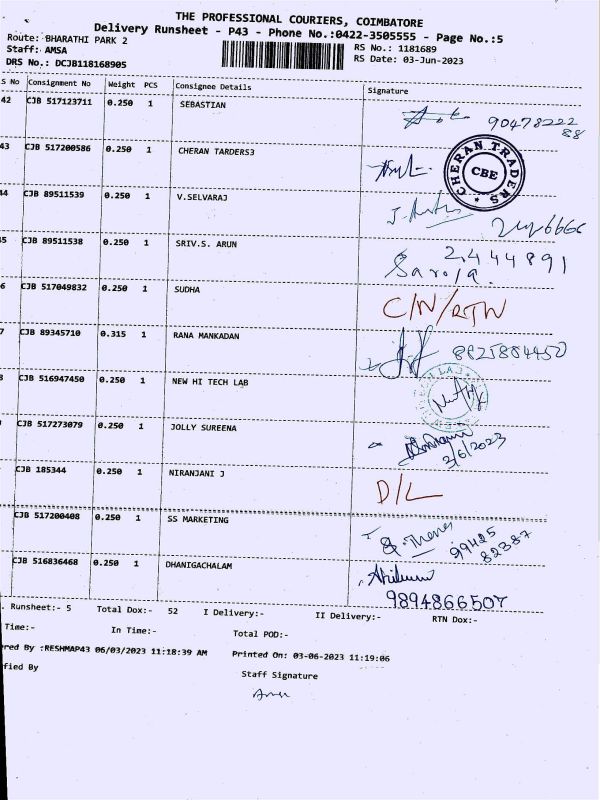 THE PROFESSIONAL COURIERS, COIMBATORE
Delivery Runsheet - P43 - Phone No.:0422-3505555 - Page No.:5
Route: BHARATHI PARK 2
RS No.: 1181689
Staff: AMSA
RS Date: 03-Jun-2023
DRS No.: DCJB118168905
S No Consignment No Weight PCS Consignee Details Signature
42 CJB 517123711 0.250 1 SEBASTIAN
90478222
88
43 CJB 517200586 0.250 1 CHERAN TARDERS3
CHERAN TRADERS
CBE
44 CJB 89511539 0.250 1 V.SELVARAJ
5 CJB 89511538 0.250 1 SRIV.S. ARUN
2444891
Saroja.
6 CJB 517049832 0.250 1 SUDHA C/N/RTN
7 CJB 89345710 0.315 1 RANA MANKADAN
8825884450
8 CJB 516947450 0.250 1 NEW HI TECH LAB
CJB 517273079 0.250 1 JOLLY SUREENA
2/6/2023
CJB 185344 0.250 1 NIRANJANI J D/L
CJB 517200408 0.250 1 SS MARKETING
99425
82387
CJB 516836468 0.250 1 DHANIGACHALAM
9894866507
. Runsheet:- 5 Total Dox:- 52 I Delivery:- II Delivery:- RTN Dox:-
Time:- In Time:- Total POD:-
red By :RESHMAP43 06/03/2023 11:18:39 AM Printed On: 03-06-2023 11:19:06
fied By
Staff Signature